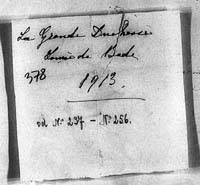 La Grande Duchesse
Louise de Bade
378
1913.
vd. N° 237 – N° 256.